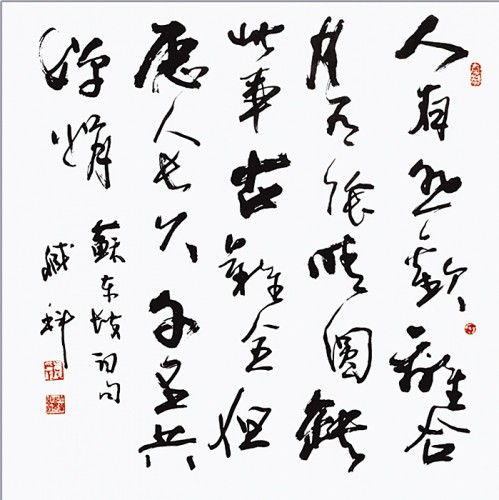 人有悲歡離合
月有陰晴圓缺
此事古難全但
愿人長久千里共
嬋娟
蘇東坡詞句